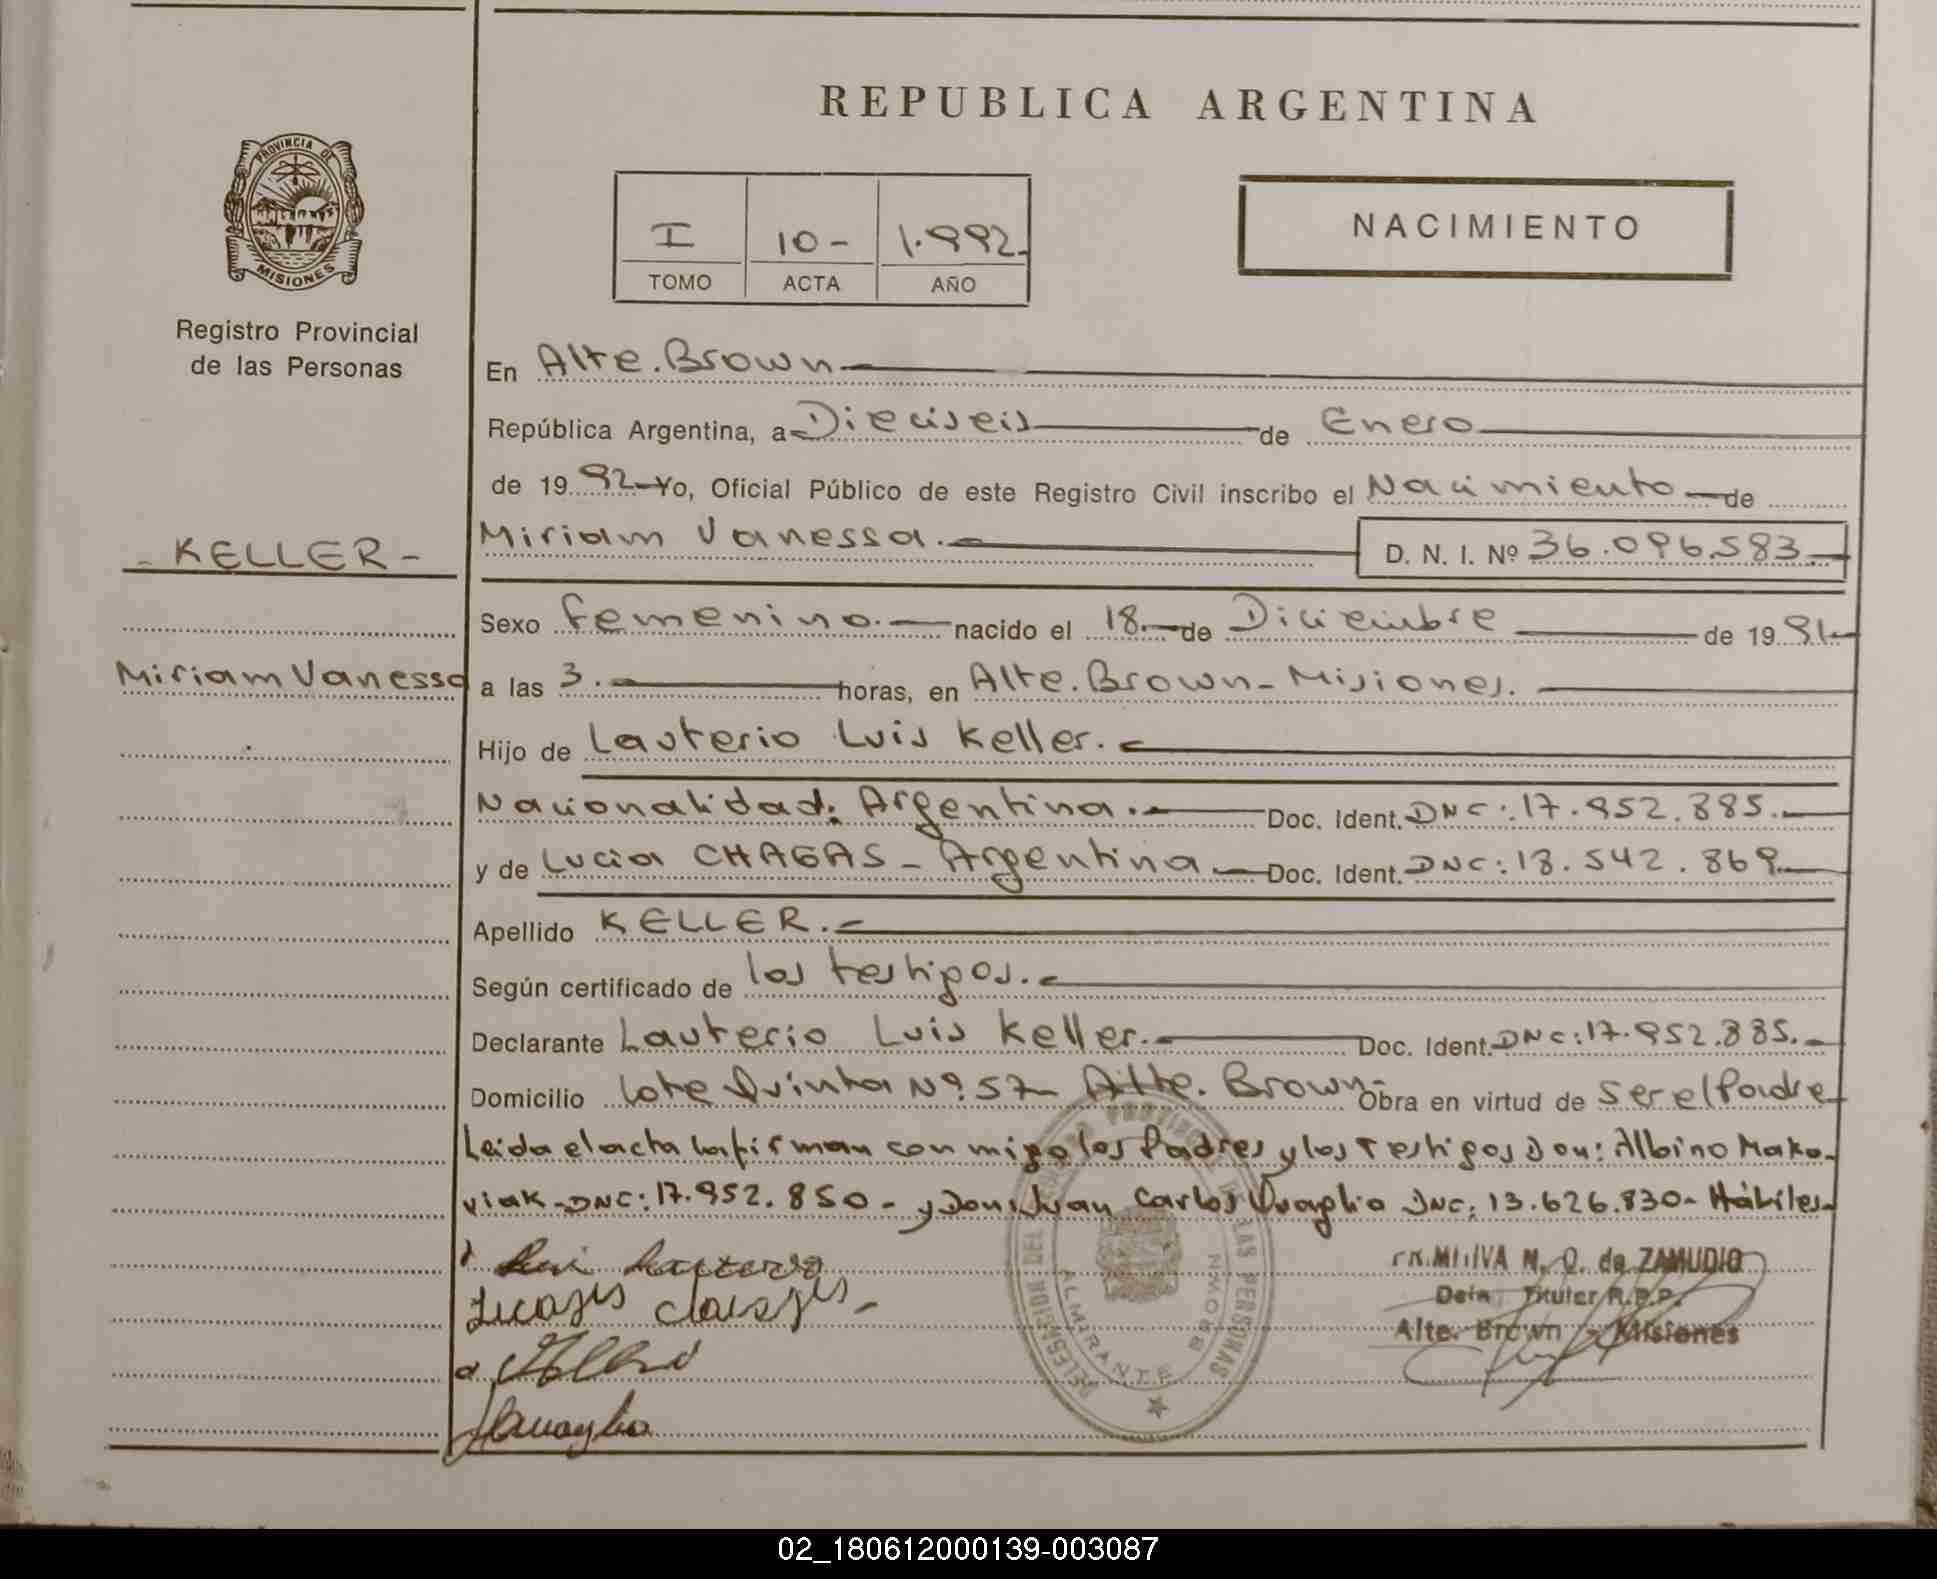 REPUBLICA ARGENTINA
PROVINCIA DE
MISIONES
Registro Provincial
de las Personas
I 10- 1.992.
TOMO ACTA AÑO
NACIMIENTO
En Alte. Brown
República Argentina, a Dieciseis de Enero
de 19 92 Yo, Oficial Público de este Registro Civil inscribo el Nacimiento de
- KELLER -
Miriam Vanessa.
D. N. I. Nº 36.096.583.
Sexo femenino. nacido el 18. de Diciembre de 19 91
Miriam Vanessa
a las 3. horas, en Alte. Brown - Misiones.
Hijo de Lauterio Luis Keller.
Nacionalidad: Argentina. Doc. Ident. DNC: 17.952.885.
y de Lucia CHAGAS - Argentina Doc. Ident. DNC: 18.542.869
Apellido KELLER.
Según certificado de los testigos.
Declarante Lauterio Luis Keller. Doc. Ident. DNC: 17.952.885.
Domicilio Lote Quinta Nº 57 - Alte. Brown - Obra en virtud de ser el Padre
Leida el acta la firman conmigo los Padres y los Testigos Don: Albino Mako-
viak - DNC: 17.952.850 - y Don: Juan Carlos Quaglio DNC: 13.626.830 - Hábiles
DELEGACION DEL REGISTRO PROVINCIAL DE LAS PERSONAS
ALMIRANTE BROWN
M. Q. de ZAMUDIO
Titular R.P.P.
Alte. Brown - Misiones
02_180612000139-003087